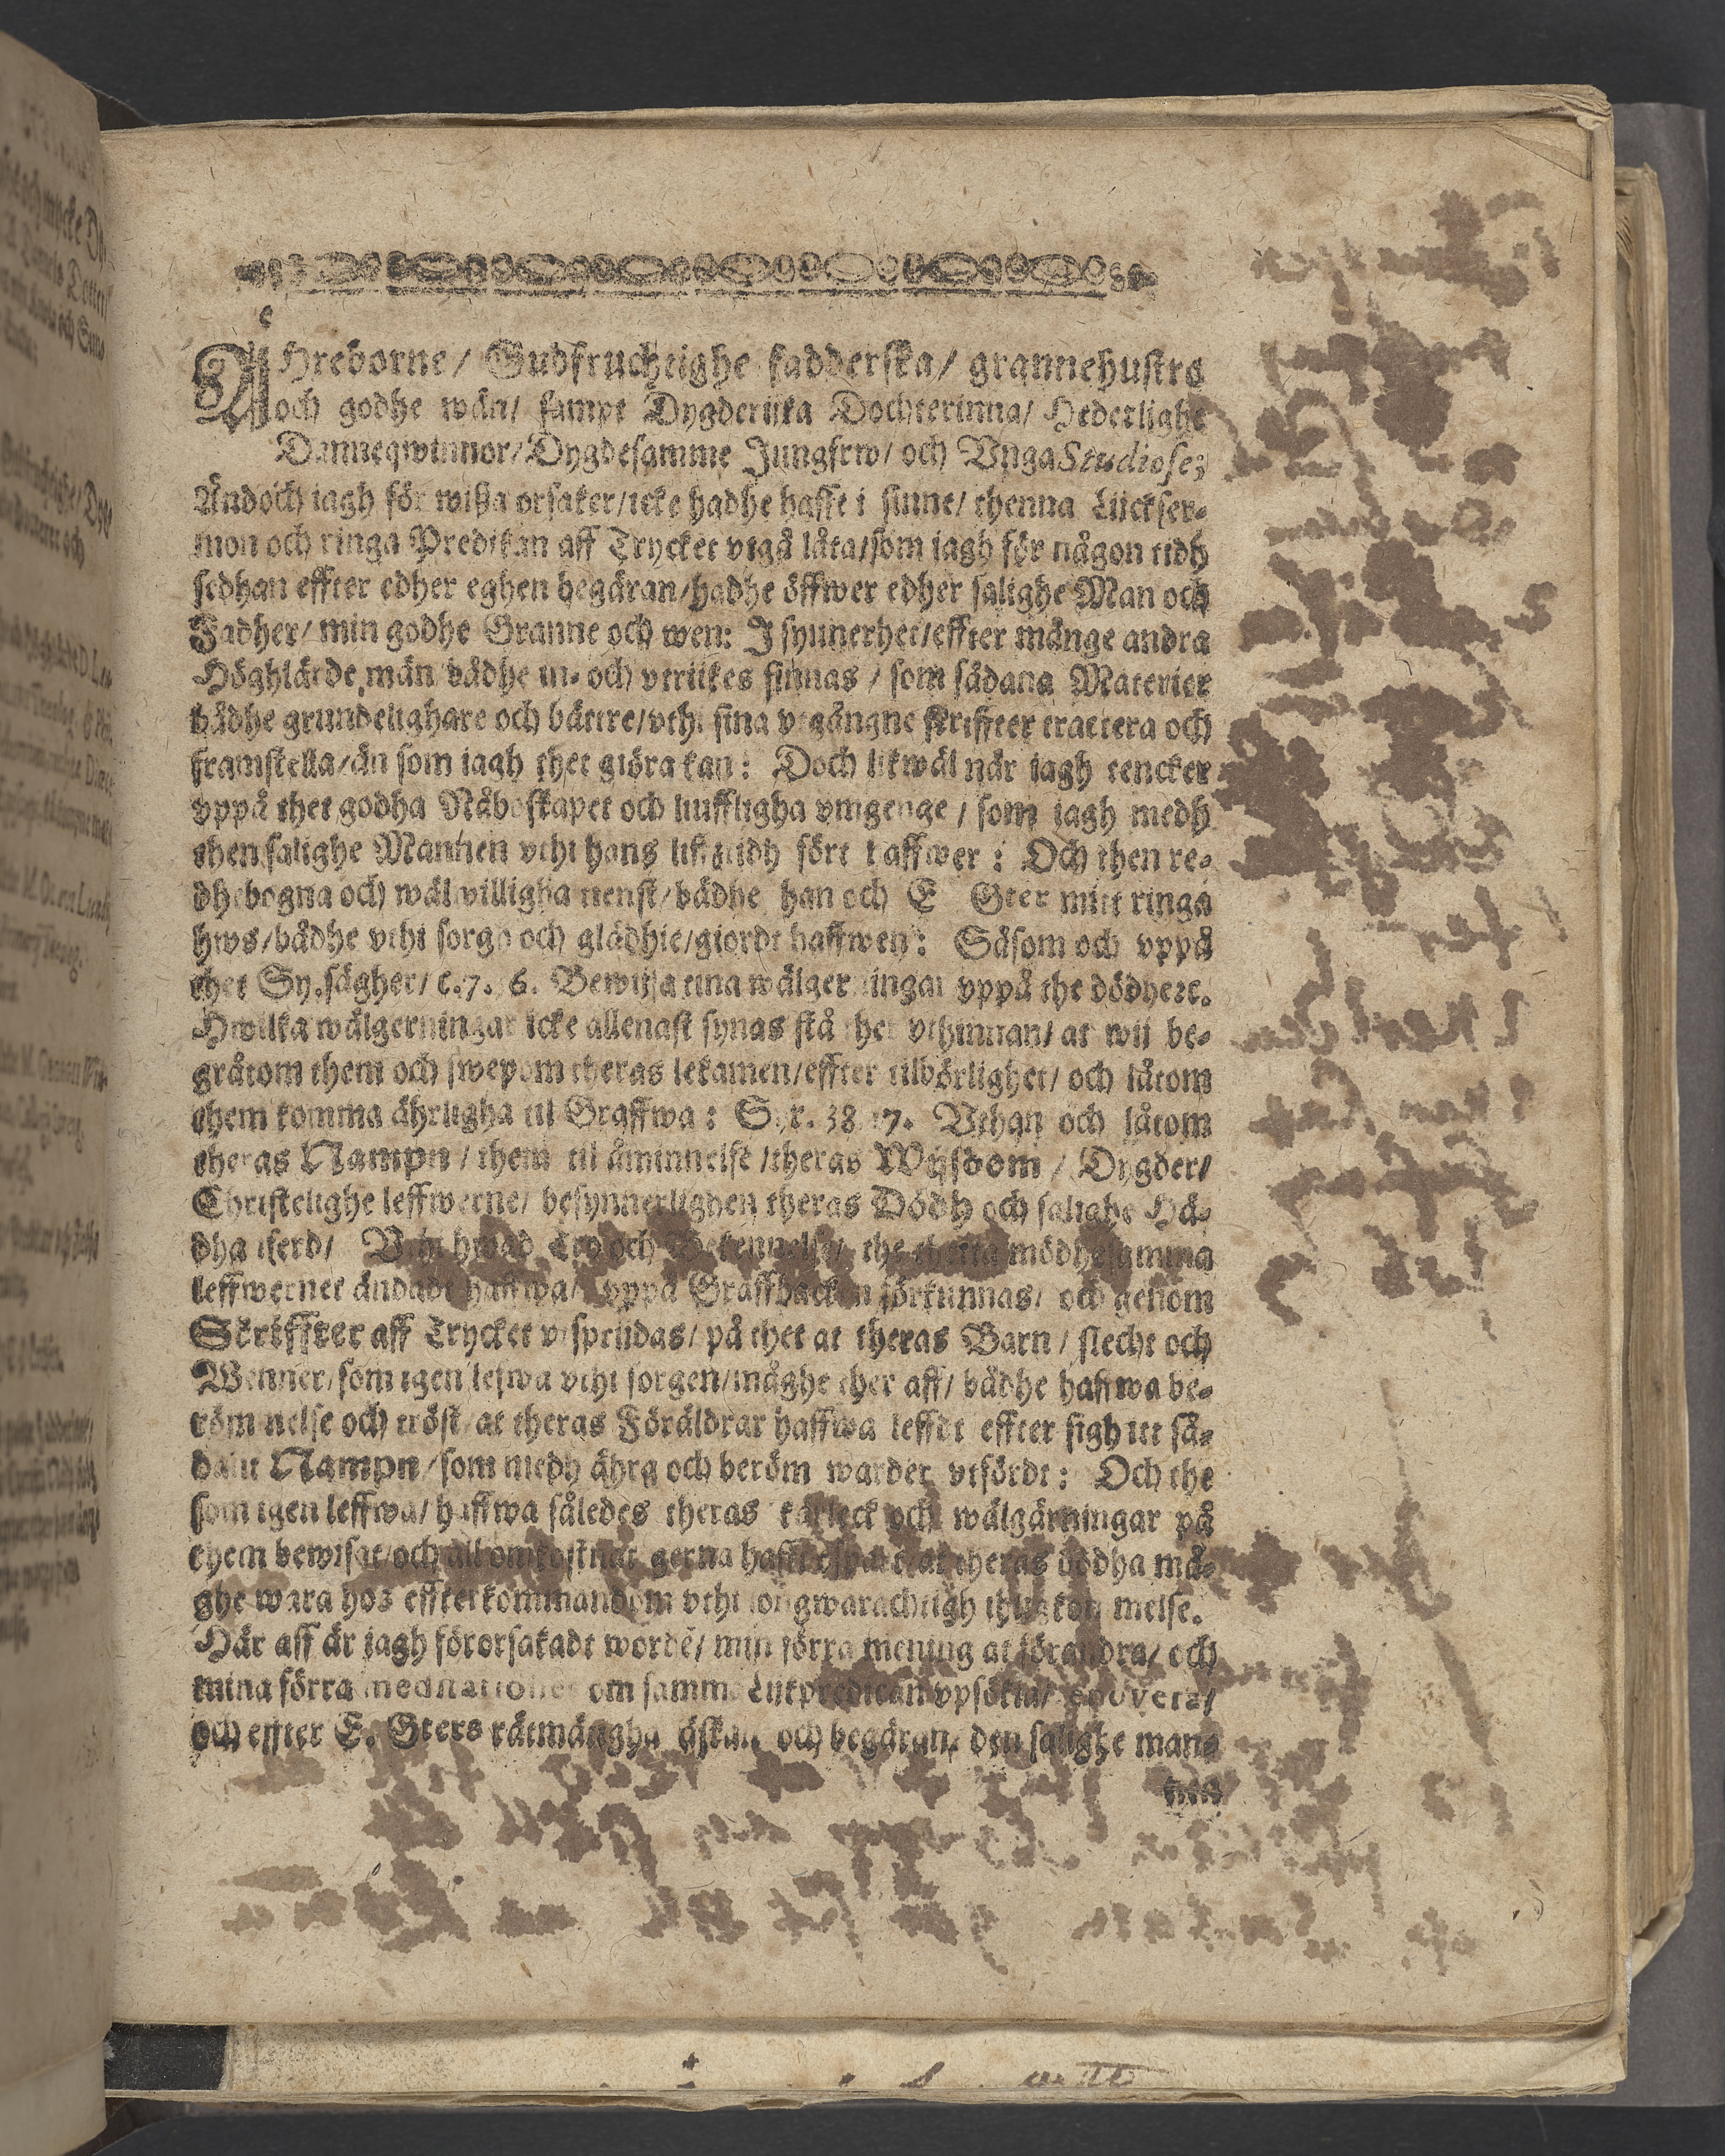 Åhreborne/ Gudfruchtighe fadderska/ grannehustro
och godhe wän/ sampt Dygderijka Dochterinna/ Hederlighe
Danneqwinnor/ Dygdesamme Jungfrw/ och Vnga Studiose;
Ändoch iagh för wißa orsaker/icke hadhe hafft i sinne/ thenna Lijckser-
mon och ringa Predikan aff Trycket vtgå låta/som iagh för någon tidh
sedhan effter edher eghen begäran/hadhe öffwer edher salighe Man och
Fadher/ min godhe Granne och wen: J synnerhet/effter månge andra
Höghlärde män bådhe in- och vtrijkes finnas / som sådana Materier
bådhe grundelighare och bättre/vthi sina vtgångne skriffter tractera och
framstella/än som iagh thet giöra kan: Doch likwäl när iagh tencker
vppå thet godha Nåboskapet och liuffligha vmgenge / som iagh medh
then salighe Mannen vthi hans lifztidh fört haffwer : Och then re-
dhebogna och wälwilligha tienst/bådhe han och E Gter mitt ringa
hws/bådhe vthi sorgh och glädhie/giordt haffwen: Såsom och vppå
thet Sy. sägher/ c.7. 36. Bewijsa tina wälgerningar vppå the dödhe ꝛc.
Hwilka wälgerningar icke allenast synas stå ther vthinnan/ at wij be-
gråtom them och swepom theras lekamen/effter tilbörlighet/ och låtom
them komma ährligha til Graffwa : Syr. 38. 17. Vthan och låtom
theras Nampn / them til åminnelse /theras Wijsdom / Dygder/
Christelighe leffwerne/ besynnerlighen theras Dödh och salighe Hä-
dhanferd/ Vthi hwad Tro och Bekennelse/ the thetta mödhesamma
leffwernet ändadt haffwa/ vppå Graffbacken förkunnas/ och genom
Scriffter aff Trycket vtspridas/ på thet at theras Barn / slecht och
Wenner/som igen leffwa vthi sorgen/måghe ther aff/ bådhe haffwa be-
römmelse och tröst/ at theras Föräldrar haffwa leffdt effter sigh itt så-
dant Nampn /som medh ähra och beröm warder vtfördt: Och the
som igen leffwa/ haffwa således theras kärleck och wälgärningar på
them bewisat/och all omkostnat gerna hafft ospart/at theras dödha må-
ghe wara hos effterkommandom vthi longwarachtigh ihughkommelse.
Här aff är iagh förorsakadt wordē/ min förra mening at förandra/ och
mina förra meditationes om samma Lijkpredikan vpsökia/
och effter E. Gters rätmätigha äskan och begäran/ den salighe man-
nen